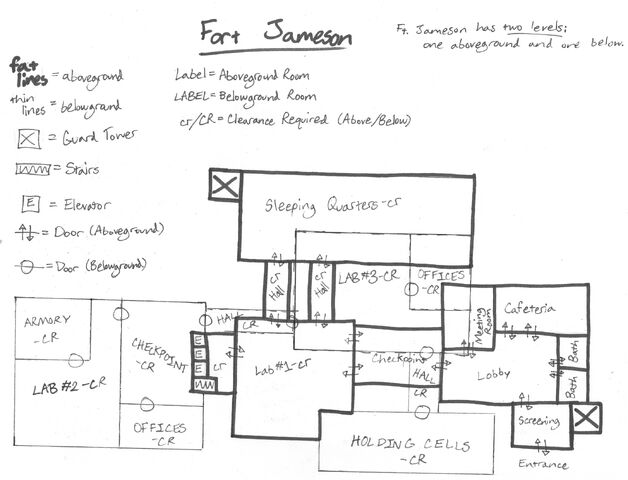 Fort Jameson
Ft. Jameson has two levels:
one aboveground and one below.
fat lines = aboveground
thin lines = belowground
= Guard Tower
= Stairs
E = Elevator
= Door (Aboveground)
= Door (Belowground)
Label = Aboveground Room
LABEL = Belowground Room
cr/CR = Clearance Required (Above/Below)
Sleeping Quarters-cr
cr Hall
cr Hall
LAB #3-CR
OFFICES
-CR
Meeting Room
Cafeteria
ARMORY
-CR
HALL
CR
CHECKPOINT
-CR
E
E
E
cr
Lab #1-cr
Checkpoint
HALL
CR
Lobby
Bath
Bath
LAB #2-CR
OFFICES
-CR
HOLDING CELLS
-CR
Screening
Entrance